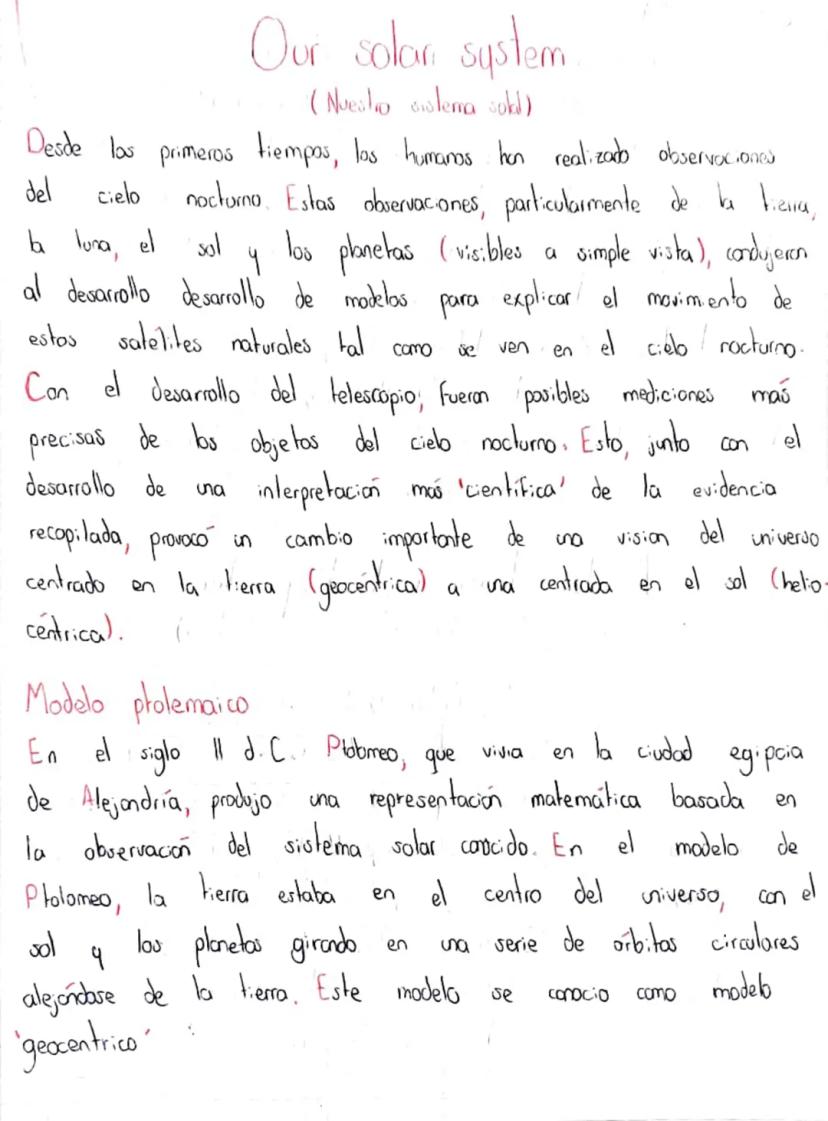 Our solar system
(Nuestro sistema solar)
Desde los primeros tiempos, los humanos han realizado observaciones
del cielo nocturno. Estas observaciones, particularmente de la tierra,
la luna, el sol y los planetas (visibles a simple vista), condujeron
al desarrollo desarrollo de modelos para explicar el movimiento de
estos satélites naturales tal como se ven en el cielo nocturno.
Con el desarrollo del telescopio, fueron posibles mediciones más
precisas de los objetos del cielo nocturno. Esto, junto con el
desarrollo de una interpretación más 'científica' de la evidencia
recopilada, provocó un cambio importante de una vision del universo
centrado en la tierra (geocéntrica) a una centrada en el sol (helio-
céntrica).
Modelo ptolemaico
En el siglo II d.C. Ptolomeo, que vivia en la ciudad egipcia
de Alejandría, produjo una representación matemática basada en
la observación del sistema solar conocido. En el modelo de
Ptolomeo, la tierra estaba en el centro del universo, con el
sol y los planetas girando en una serie de órbitas circulares
alejándose de la tierra. Este modelo se conocio como modelo
'geocentrico'